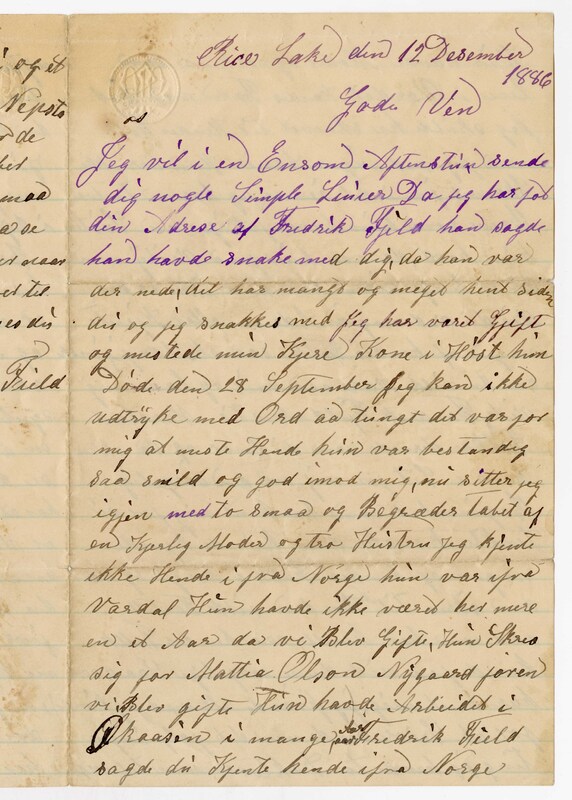 i og et
Nepsto
maa
Field
Rice Lake den 12 Desember
1886
Gode Ven
os
Jeg vil i en Ensom Aftenstun sende
dig nogle Simple Linier Da jeg har fot
din Adrese af Fredrik Fjeld han sagde
han havde snake med dig, da han var
der nede, det har mangt og meget hent siden
dis og jeg snakkes med Jeg har varet Gift
og mistede min Kjere Kone i Høst hun
Døde den 28 September Jeg kan ikke
udtryke med Ord aa tungt det var for
mig at miste Hende hun var bestandig
saa snild og god imod mig, nu sitter jeg
igjen med to smaa og Begræder tabet af
en Kjerlig Moder og tro Hustru Jeg kjente
ikke Hende i fra Norge hun var ifra
Vardal Hun havde ikke været her mere
en et Aar da vi Blev Gifte, Hun Skrev
sig for Mattia Olson Nygaard føren
vi Blev gifte Hun havde Arbeidet i
Skaasen i mange Aar Fredrik Field
sagde du Kjente hende ifra Norge